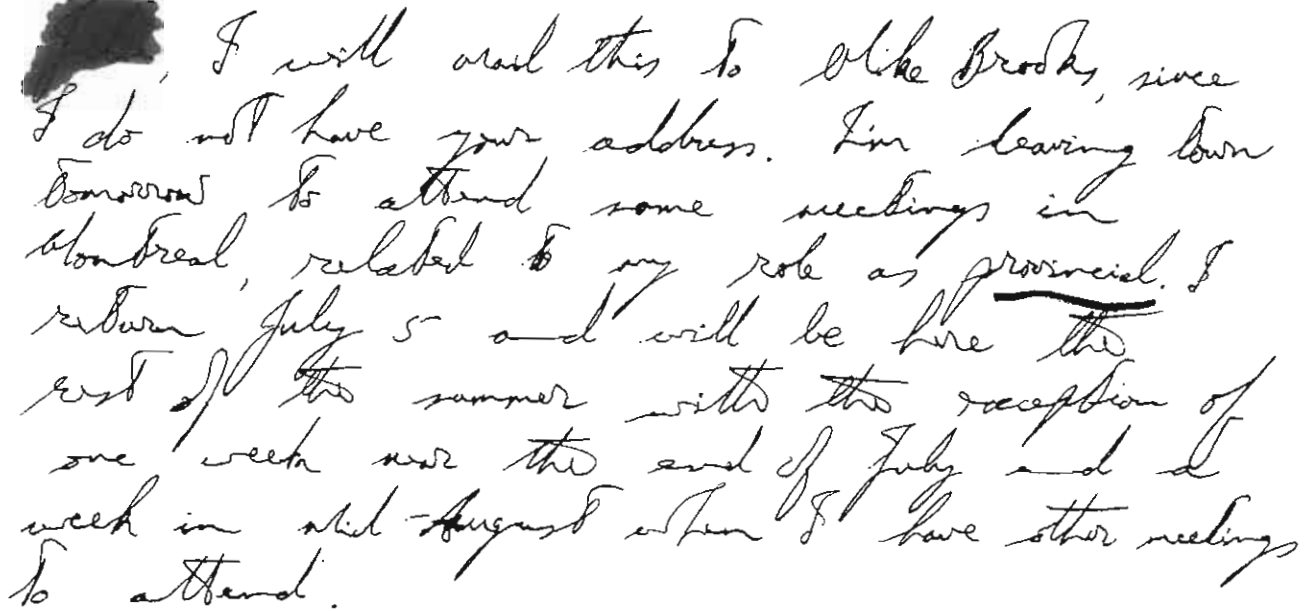 , I will mail this to Mike Brooks, since
I do not have your address. I'm leaving town
tomorrow to attend some meetings in
Montreal, related to my role as provincial. I
return July 5 and will be here the
rest of the summer with the exception of
one week near the end of July and a
week in mid-August when I have other meetings
to attend.